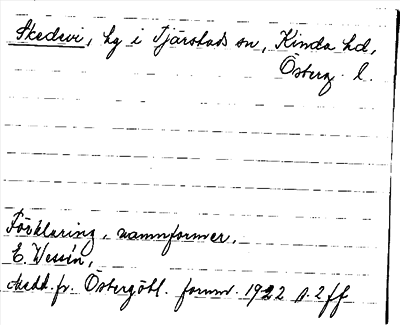 Skedevi, hg i Tjärstads sn, Kinda hd,
Österg. l.
Förklaring, namnformer,
E. Wessén,
Medd. fr. Östergötl. fornm. 1922 s. 2 ff